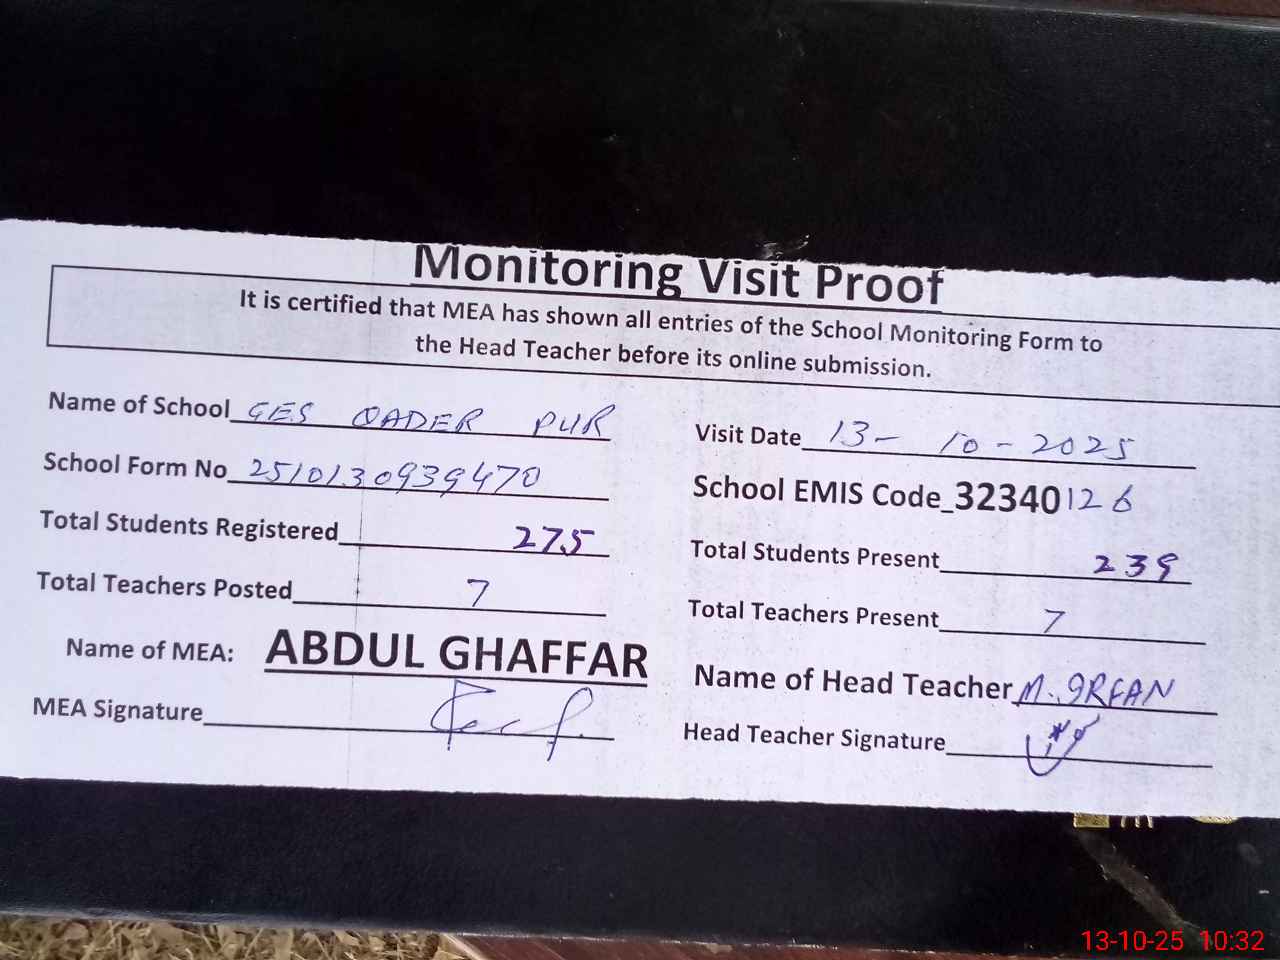 Monitoring Visit Proof
It is certified that MEA has shown all entries of the School Monitoring Form to
the Head Teacher before its online submission.
Name of School GES QADER PUR
Visit Date 13-10-2025
School Form No 2510130939470
School EMIS Code_32340126
Total Students Registered 275
Total Students Present 239
Total Teachers Posted 7
Total Teachers Present 7
Name of MEA: ABDUL GHAFFAR
Name of Head Teacher M. IRFAN
MEA Signature
Head Teacher Signature
13-10-25 10:32